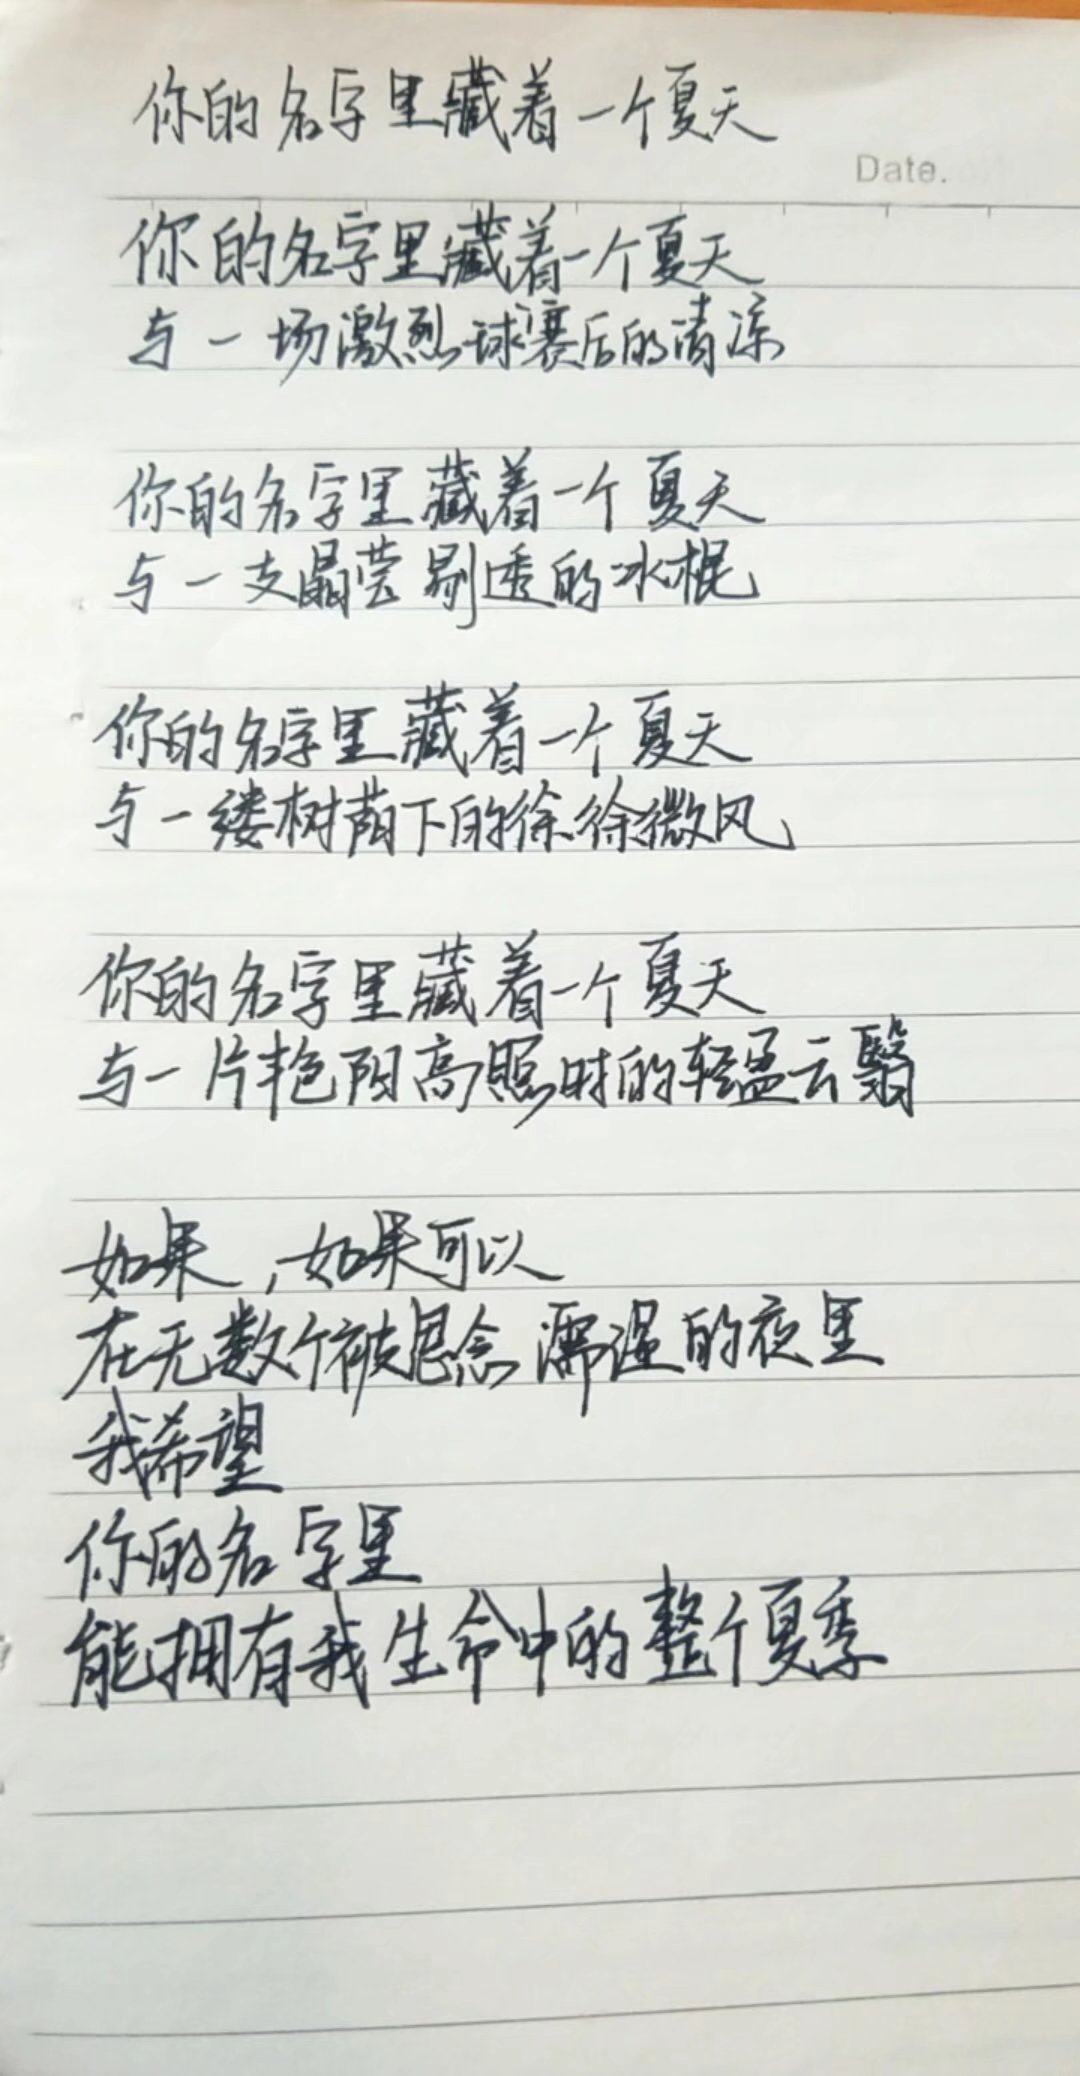 你的名字里藏着一个夏天
Date.
你的名字里藏着一个夏天
与一场激烈球赛后的清凉
你的名字里藏着一个夏天
与一支晶莹剔透的冰棍
你的名字里藏着一个夏天
与一缕树荫下的徐徐微风
你的名字里藏着一个夏天
与一片艳阳高照时的轻盈云翳
如果,如果可以
在无数个被思念濡湿的夜里
我希望
你的名字里
能拥有我生命中的整个夏季